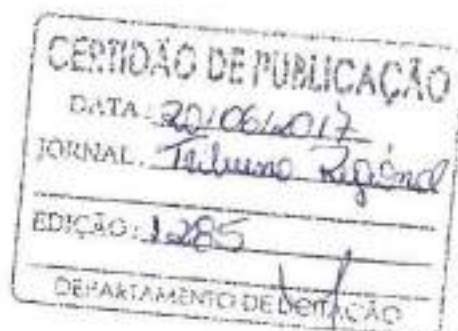 CERTIDÃO DE PUBLICAÇÃO
DATA: 20/06/2017
JORNAL: Tribuna Regional
EDIÇÃO: 1285
DEPARTAMENTO DE LICITAÇÃO